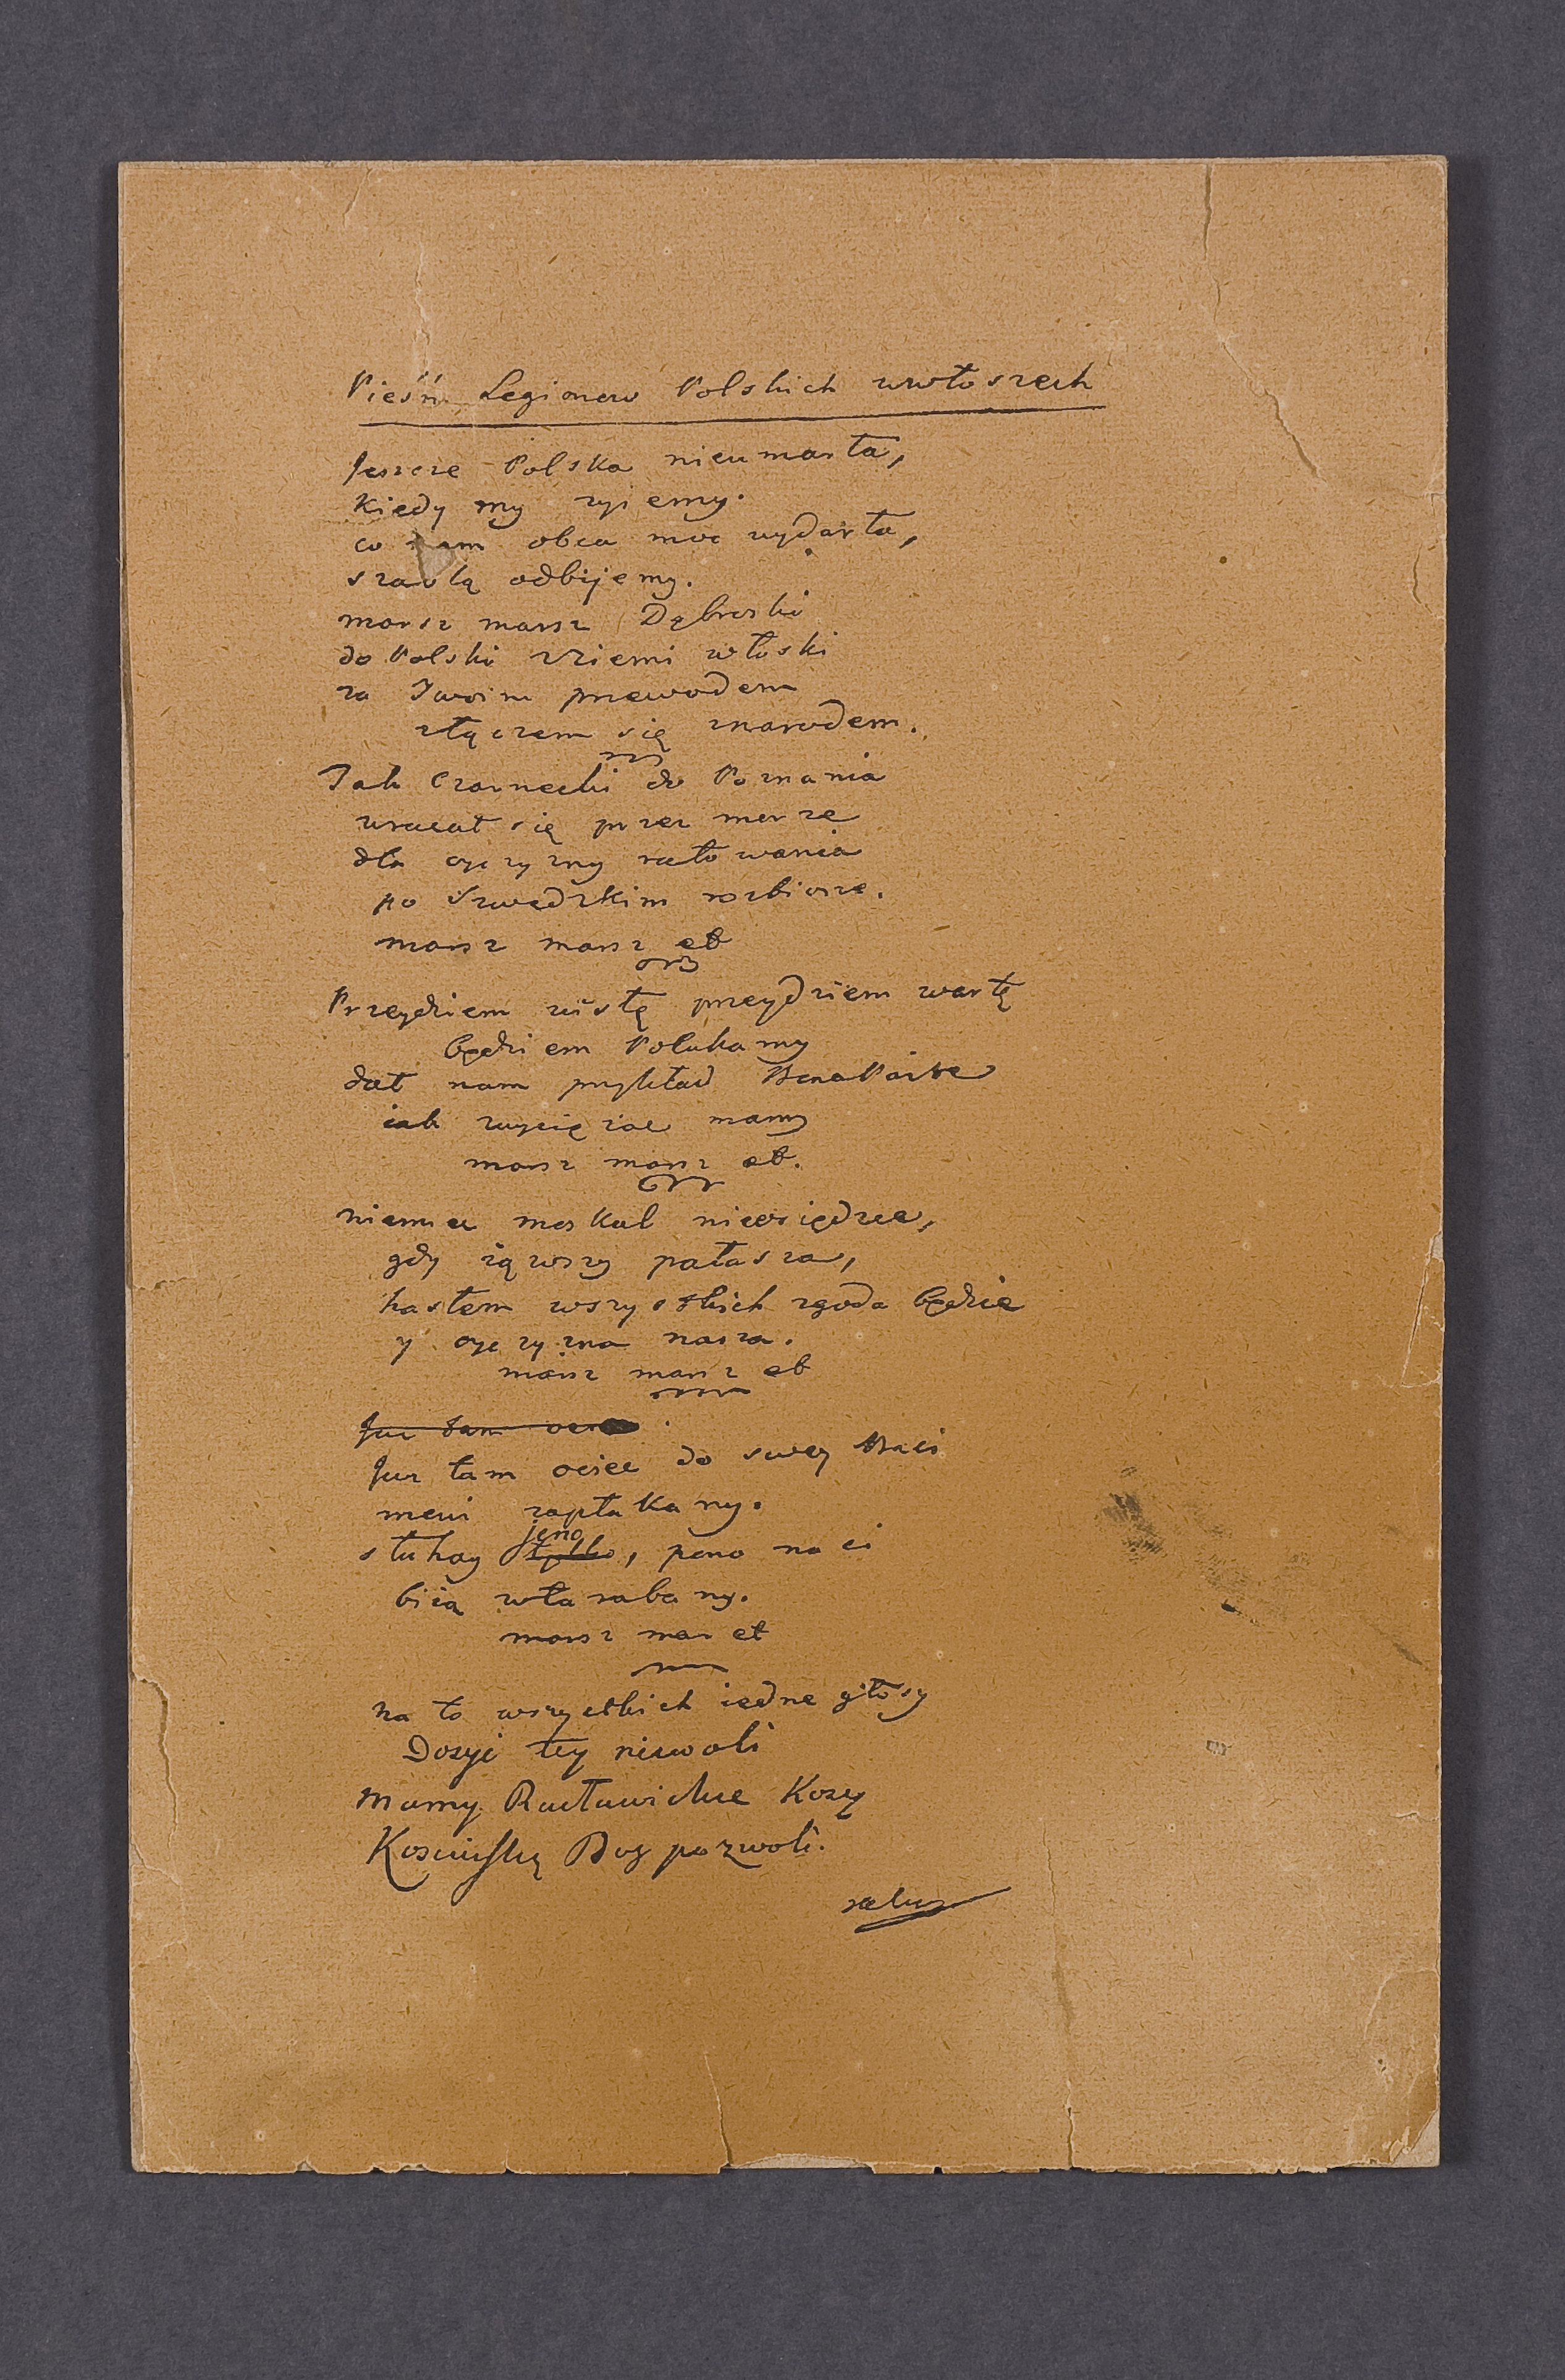 Pieśń Legionow Polskich wewłoszech
Jeszcze Polska nieumarła,
kiedy my zyiemy.
co nam obca moc wydarła,
szablą odbijemy.
marsz marsz Dąbroski
do Polski zziemi włoski
za Twoim przewodem
złączem się znarodem.
Jak Czarnecki do Poznania
wracał się przez morze
dla oyczyzny ratowania
po Szwedzkim rozbiorze.
marsz marsz et
Przeydziem wisłę przeydziem wartę
będziem Polakamy
dał nam przykład Bonaparte
iak zwycięzac mamy
marsz marsz et.
niemiec moskal nieosiędzie,
gdy iąwszy pałasza,
hasłem wszystkich zgoda będzie
y oyczyzna nasza.
marsz marsz et
Juz tam ociec
Juz tam ociec do swey Basi
mowi zapłakany.
jeno
słuhay tylko, pono nasi
biią wtarabany.
marsz mar et
na to wszystkich iedne głosy
Dosyć tey niewoli
mamy Racławickie Kosy
Kosciuszkę Bog pozwoli.